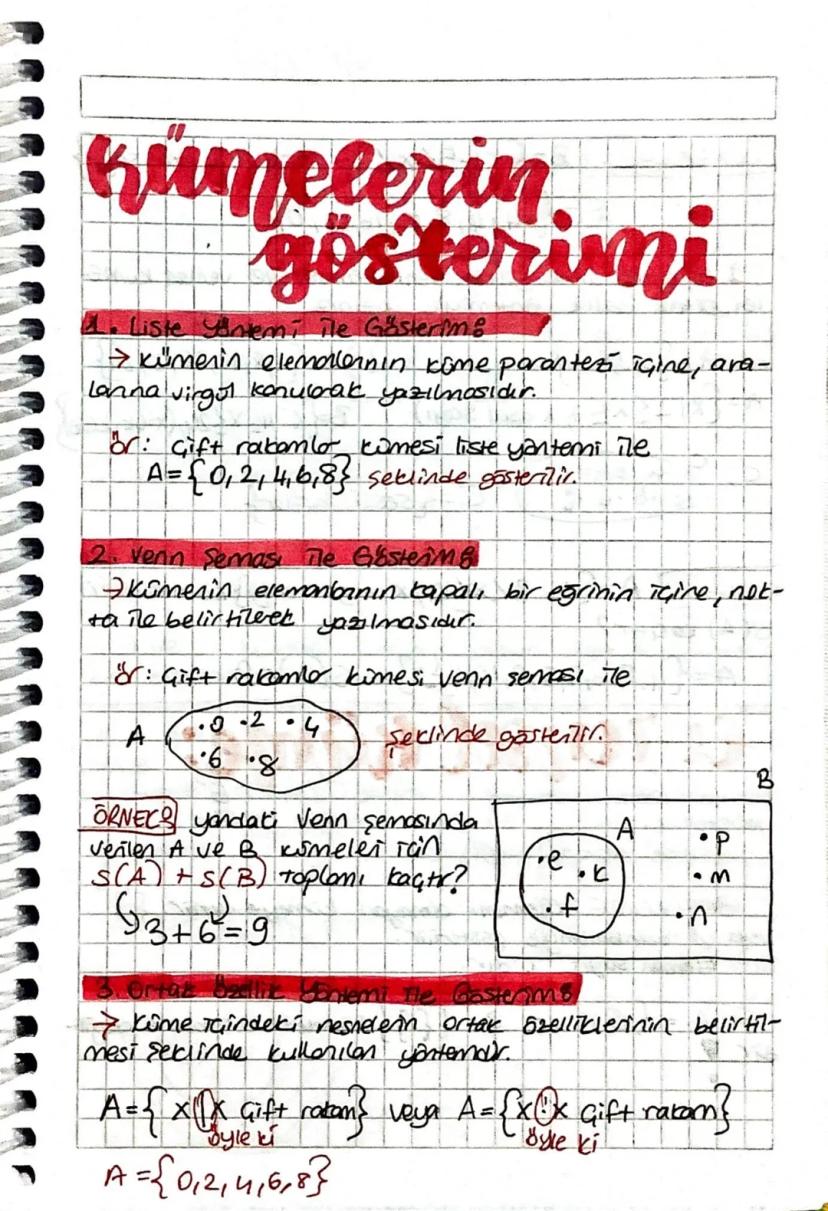 Kümelerin
gösterimi
1. Liste Yöntemi ile Gösterim:
→ Kümenin elemanlarının küme parantezi içine, ara-
larına virgül konularak yazılmasıdır.
ör: Çift rakamlar kümesi liste yöntemi ile
A={0,2,4,6,8} şeklinde gösterilir.
2. Venn Şeması ile Gösterim:
→ Kümenin elemanlarının kapalı bir eğrinin içine, nok-
ta ile belirtilerek yazılmasıdır.
ör: Çift rakamlar kümesi venn şeması ile
A .0 .2 .4 şeklinde gösterilir.
.6 .8
B
ÖRNEK: yandaki Venn şemasında
verilen A ve B kümeleri için
S(A) + S(B) toplamı kaçtır?
3+6=9
A
.e .k .f
.p
.m
.n
3. Ortak Özellik Yöntemi ile Gösterim:
→ Küme içindeki nesnelerin ortak özelliklerinin belirtil-
mesi şeklinde kullanılan yöntemdir.
A={x|x Çift rakam} veya A={x:x Çift rakam}
öyle ki öyle ki
A={0,2,4,6,8}